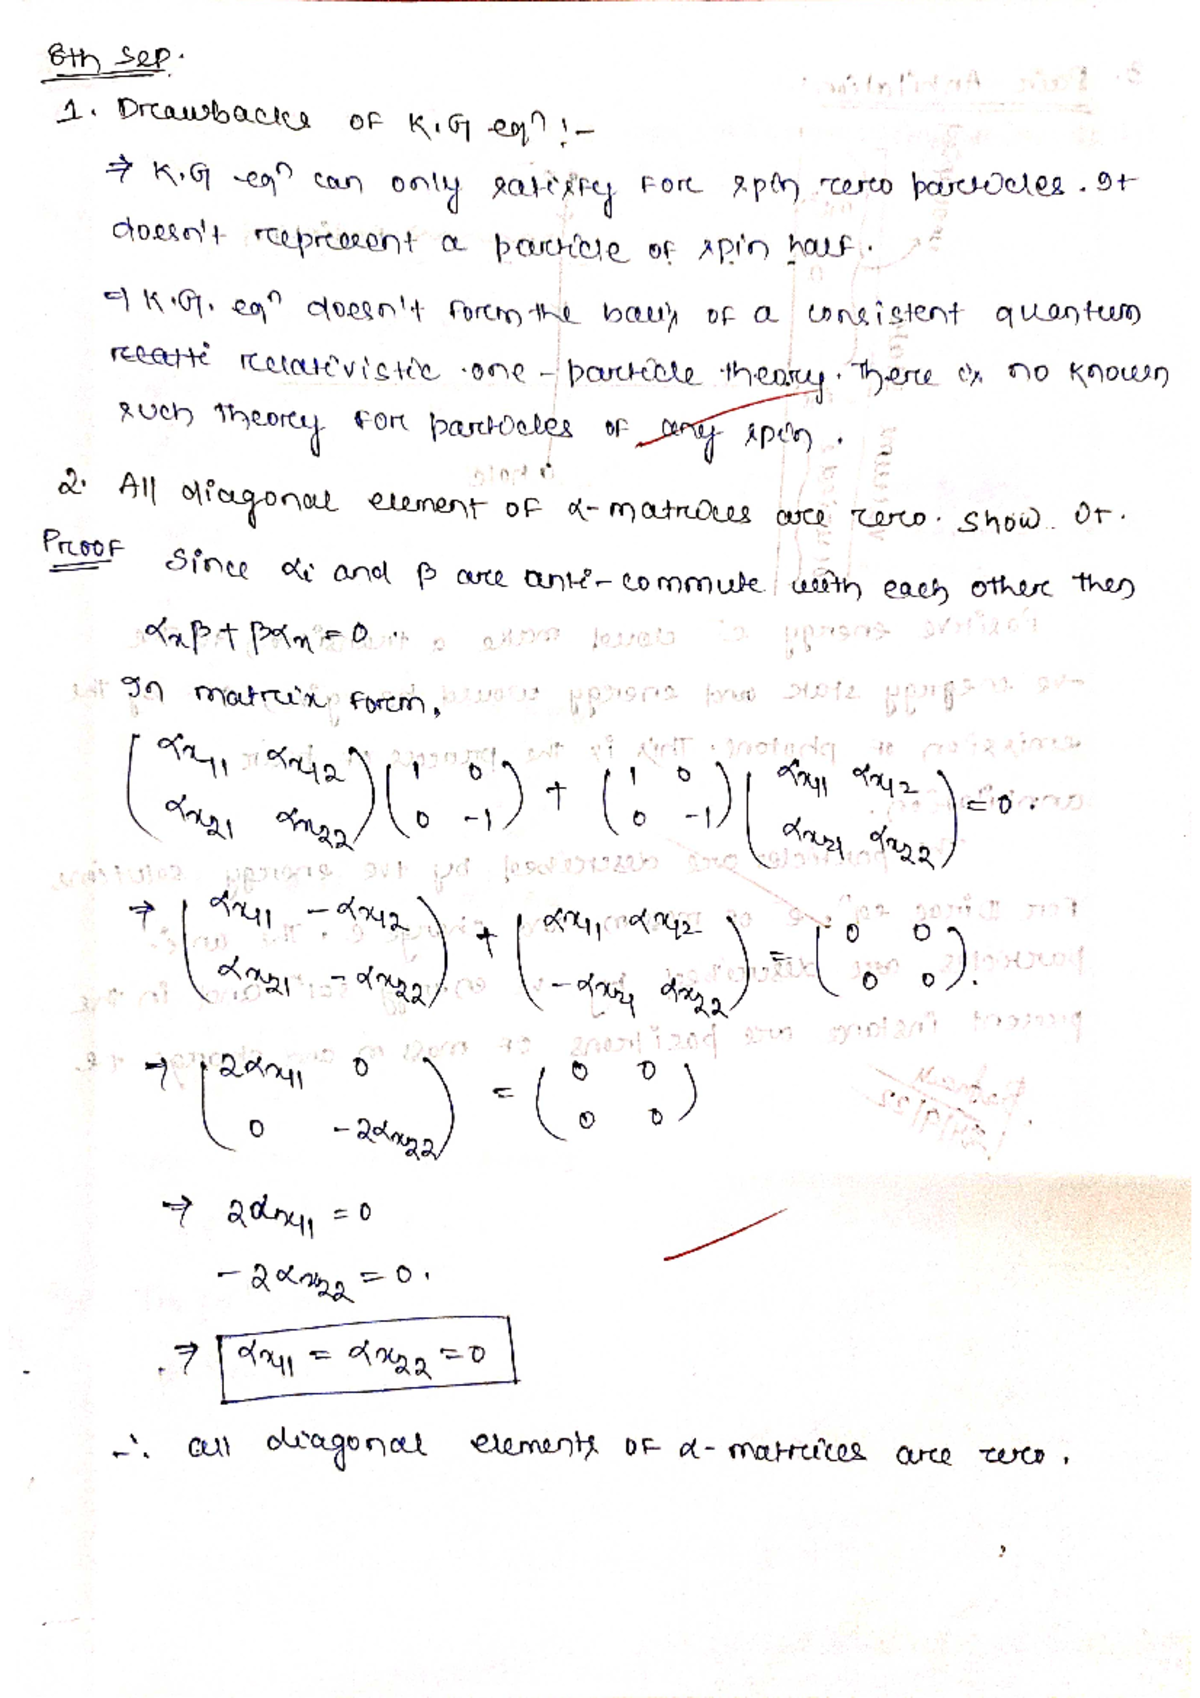 8th Sep.
1. Drawbacks of K.G eqn :-
⇒ K.G eqn can only satisfy for spin zero particles. It
doesn't represent a particle of spin half.
⇒ K.G. eqn doesn't form the basis of a consistent quantum
relativistic one-particle theory. There is no known
such theory for particles of any spin.
2. All diagonal element of α-matrices are zero. Show it.
Proof Since αi and β are anti-commute with each other then
αxβ + βαx = 0.
In matrix form,
(αx11 αx12 / αx21 αx22) (1 0 / 0 -1) + (1 0 / 0 -1) (αx11 αx12 / αx21 αx22) = 0.
⇒ (αx11 -αx12 / αx21 -αx22) + (αx11 αx12 / -αx21 αx22) = (0 0 / 0 0).
⇒ (2αx11 0 / 0 -2αx22) = (0 0 / 0 0)
⇒ 2αx11 = 0
-2αx22 = 0.
⇒ αx11 = αx22 = 0
∴ all diagonal elements of α-matrices are zero.